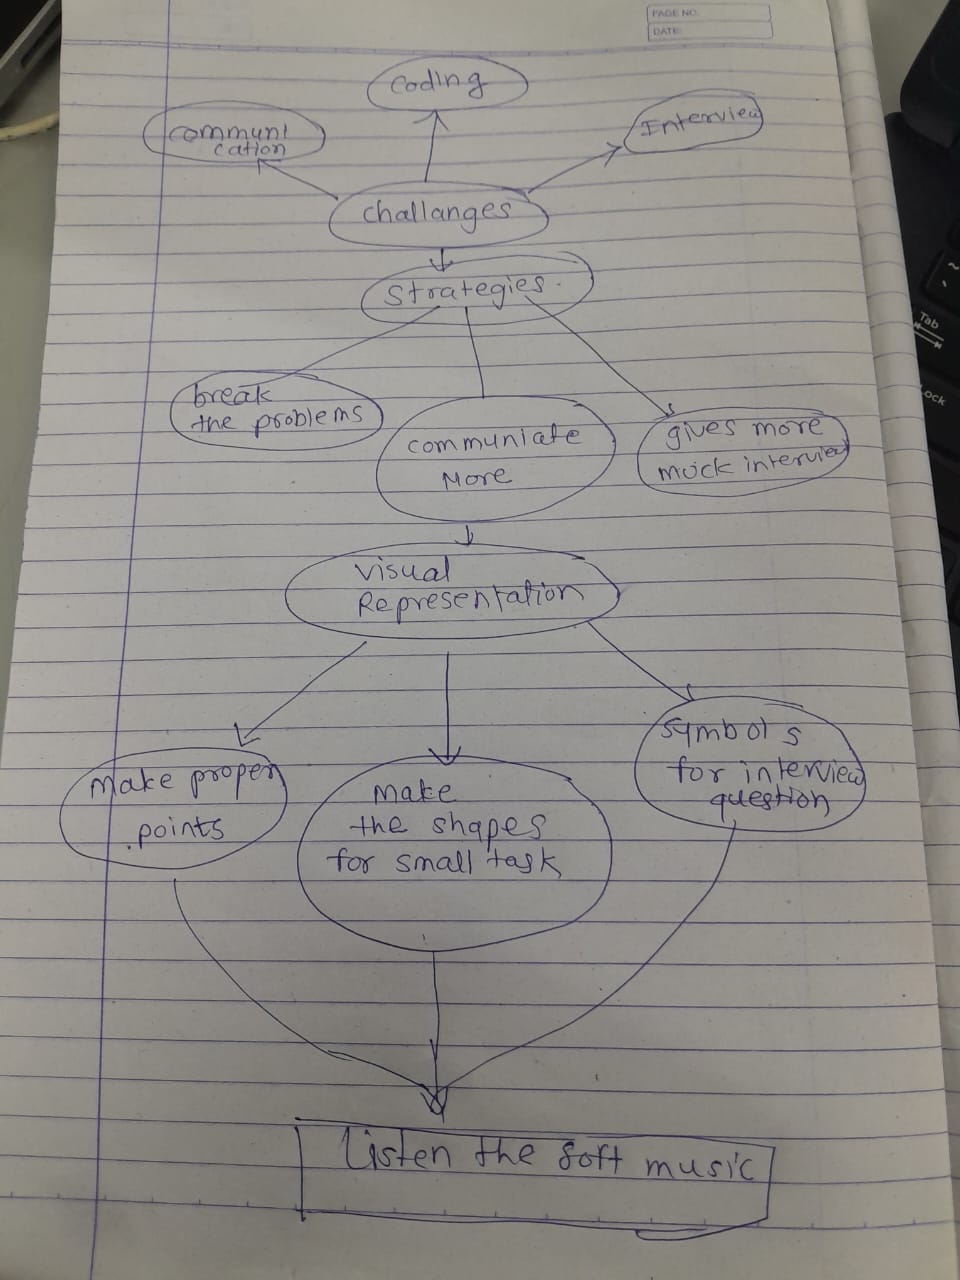 PAGE NO.
DATE:
coding
communi
cation
Interview
challanges
strategies.
break
the problems
communicate
More
gives more
muick interview
visual
Representation
make proper
.points
make
the shapes
for small task
symbols
for interview
question
Listen the soft music
Tab
Lock